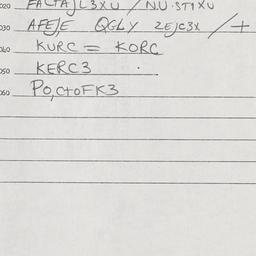 020 FACTAJL3XU / N.U.STYXU
030 AFEJE QGLY 2EJC3X / +
040 KURC = KORC
050 KERC3
060 PO,CtoFK3